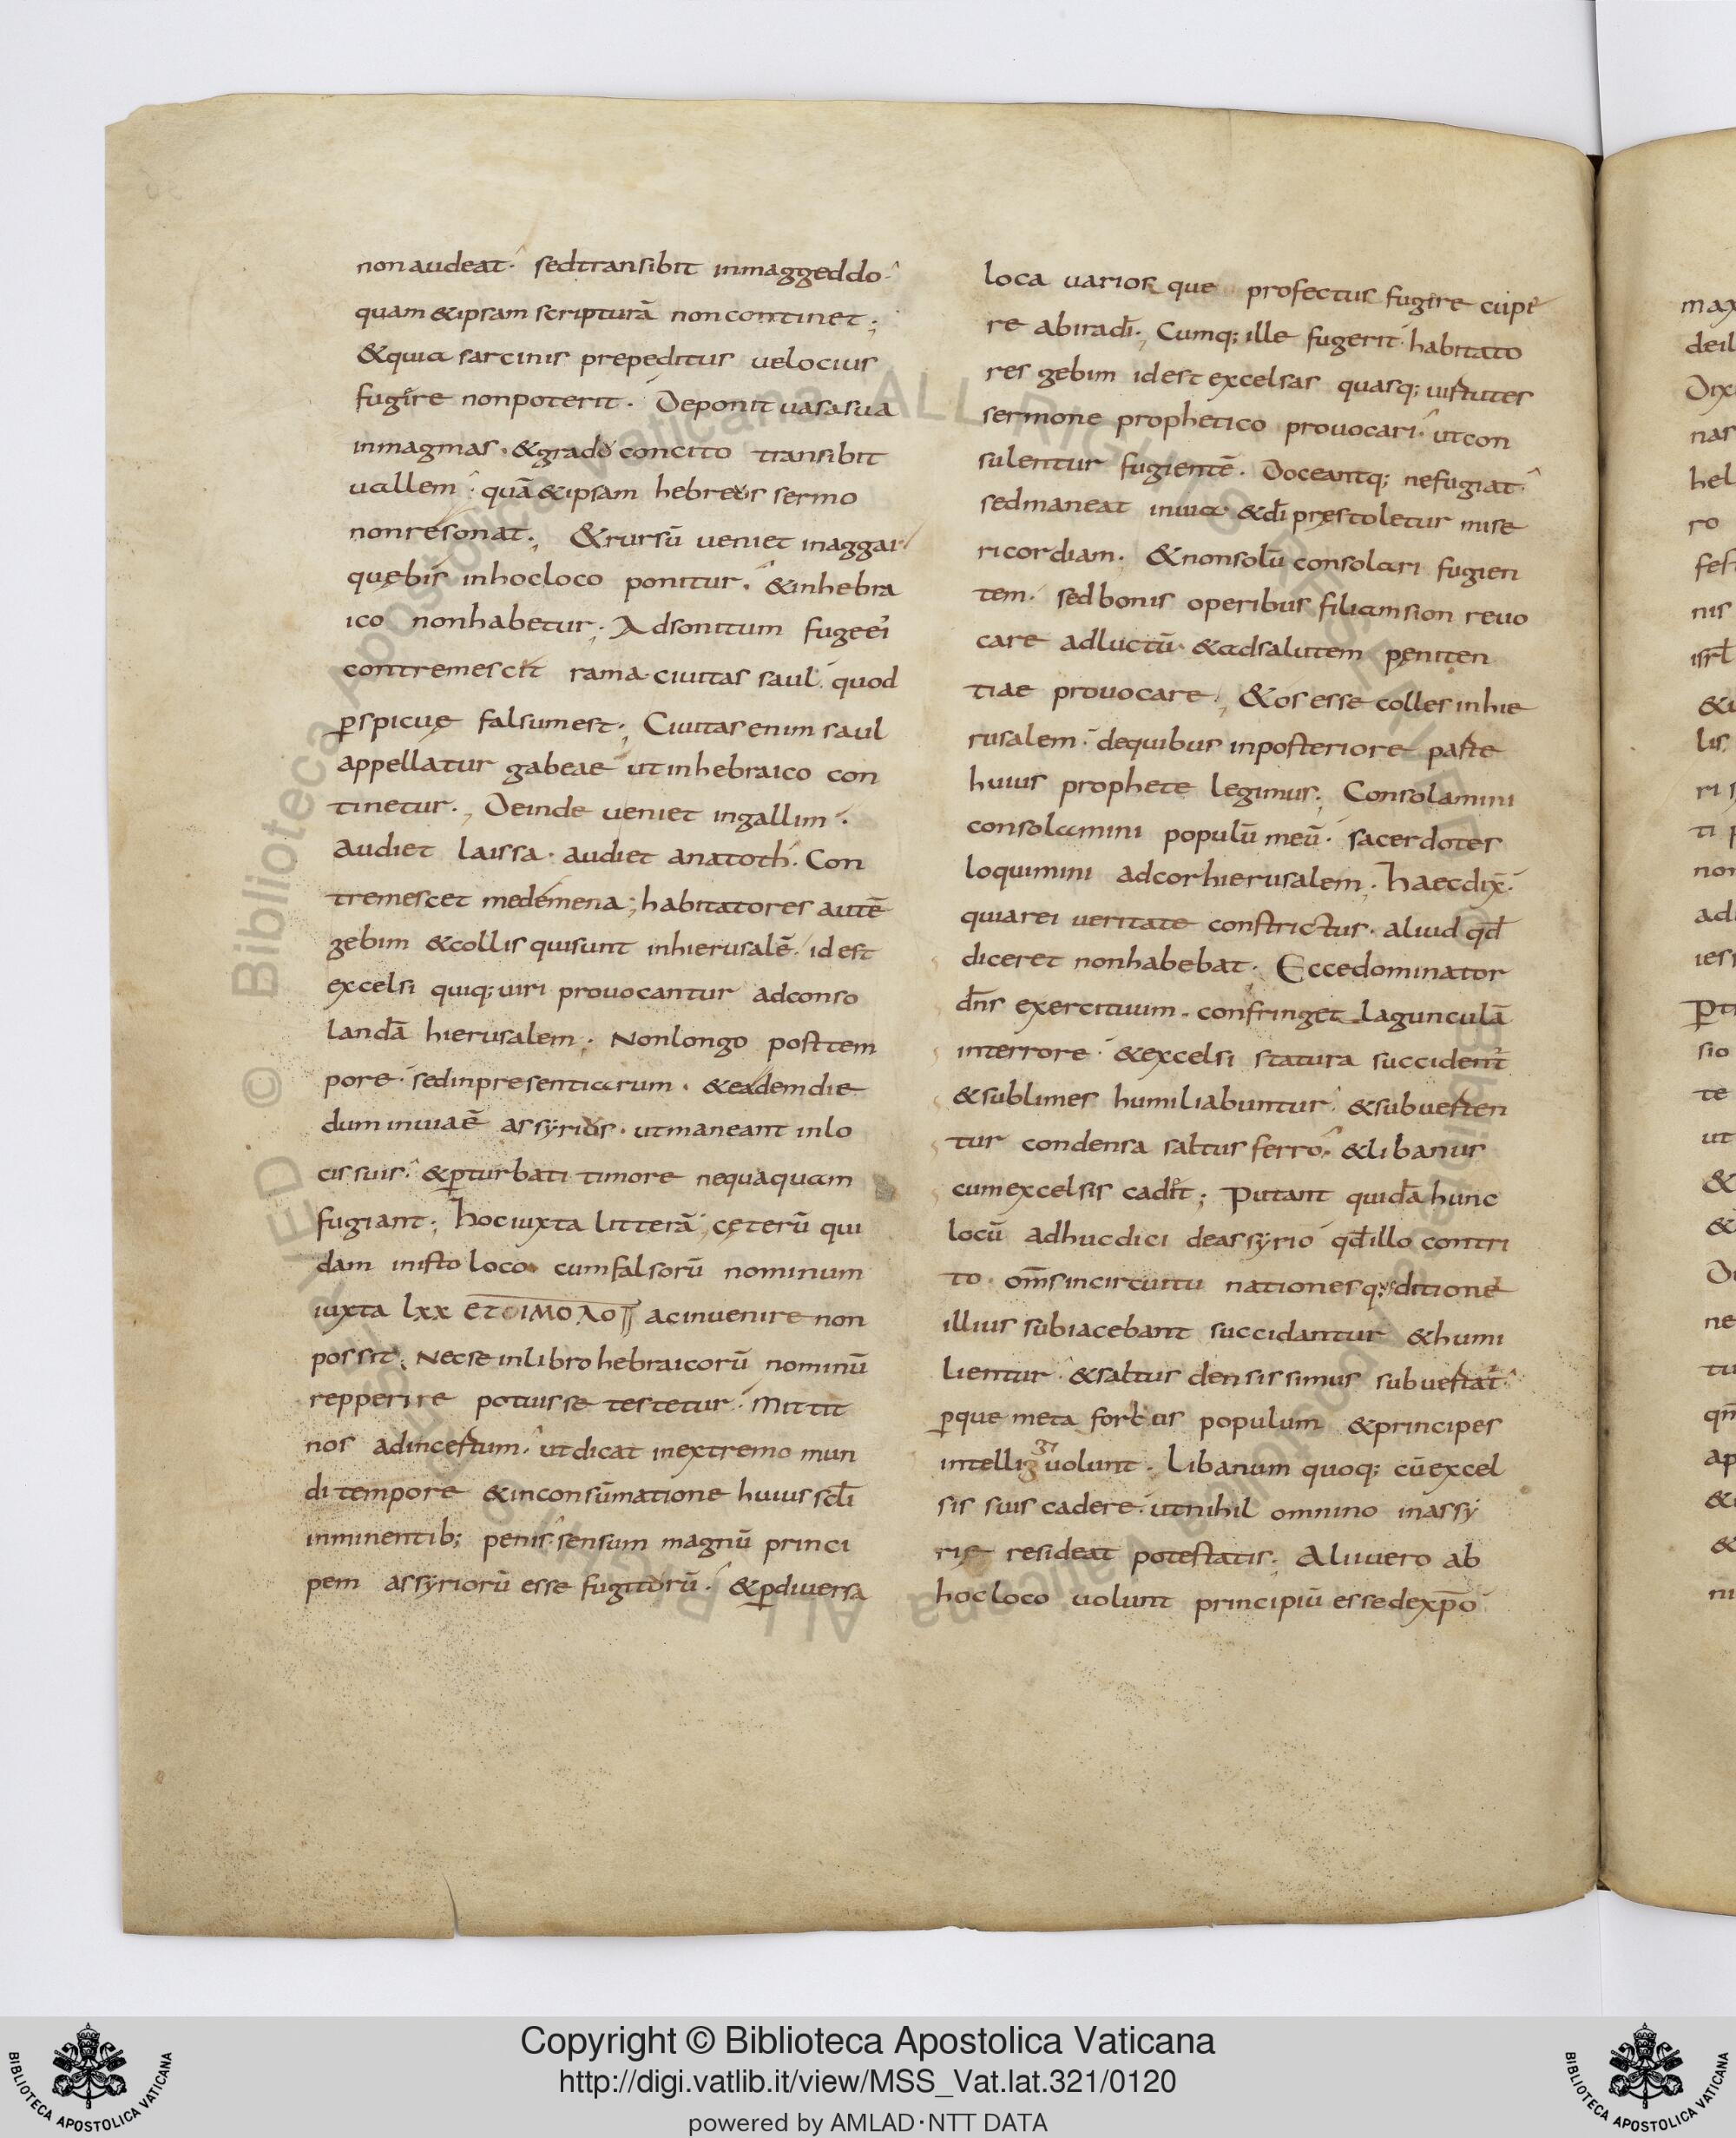 nonaudeat· sedtransibit inmaggeddo·
quam &ipsam scripturā noncontinet;
&quia sarcinis prepeditus velocius
fugire nonpoterit· Deponit vasasua
inmagmas· &grado concito transibit
vallem· quā &ipsam hebreus sermo
nonresonat·, &rursū veniet inaggai
quębis inhocloco ponitur· &inhebra
ico nonhabetur·; Adsonitum fugeei
contremescit rama civitas saul· quod
pspicuę falsumest·, Civitasenim saul
appellatur gabeae utinhebraico con
tinetur·, Deinde veniet ingallim·
Audiet laissa· audiet anatoth· Con
tremescet medemena; habitatores autē
gebim &collis quisunt inhierusalē· idest
excelsi quiq; viri provocantur adconso
landā hierusalem· Nonlongo posttem
pore· sedinpresentiarum· &eademdie
dum inviaē assyrius· utmaneant inlo
cis suis· &pturbati timore nequaquam
fugiant·, hociuxta litterā; ceterū qui
dam inisto loco cumfalsorū nominum
iuxta lxx ετοιμολοΓΙ acinvenire non
possit· Necse inlibro hebraicorū nominū
repperire potuisse testetur· Mittit
nos adincertum· utdicat inextremo mun
di tempore &inconsūmatione huius sc̄li
inminentib; penis· sensum magnū princi
pem assyriorū esse fugitorū· &pdiversa
loca varios que profectus fugire cupi&
re abiradī·, Cumq; ille fugerit· habitato
res gebim idest excelsas quasq; virtutes
sermone prophetico provocari· utcon
sulentur fugientē· Doceantq; nefugiat·
sedmaneat invia· &dī pręstoletur mise
ricordiam· &nonsolū consolari fugien
tem· sedbonis operibus filiamsion revo
care adluctū· &adsalutem pęniten
tiae provocare·, &os esse colles inhie
rusalem· dequibus inposteriore parte
huius prophete legimus·, Consolamini
consolamini populū meū· sacerdotes
loquimini adcorhierusalem·, haecdix̄·
quiarei veritate constrictus· aliud qd̄
diceret nonhabebat·, Eccedominator
dn̄s exercituum· confringet lagunculā
interrore· &excelsi statura succident̄
&sublimes humiliabuntur· &subverten
tur condensa saltus ferro· &libanus
cumexcelsis cadit; Putant quidā hunc
locū adhucdici deassyrio· qd̄illo contri
to om̄sincircuitu nationesq; ditione
illius subiacebant succidantur &humi
lientur· &saltus densissimus subvertat̄·
pque meta fortius populum &principes
intellig volunt· Libanum quoq; cūexcel
sis suis cadere· utnihil omnino inassy
rię resideat potestatis·, Aliivero ab
hocloco volunt principiū essedexp̄o
Copyright © Biblioteca Apostolica Vaticana
http://digi.vatlib.it/view/MSS_Vat.lat.321/0120
powered by AMLAD·NTT DATA